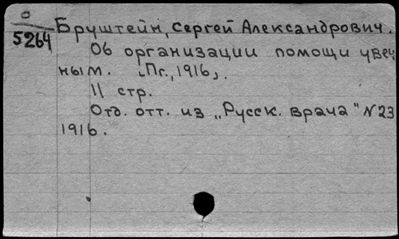 О
5264
Бруштейн, Сергей Александрович.
Об организации помощи увеч
ным. [Пг., 1916].
11 стр.
Отд. отт. из „Русск. врача" N23
1916.